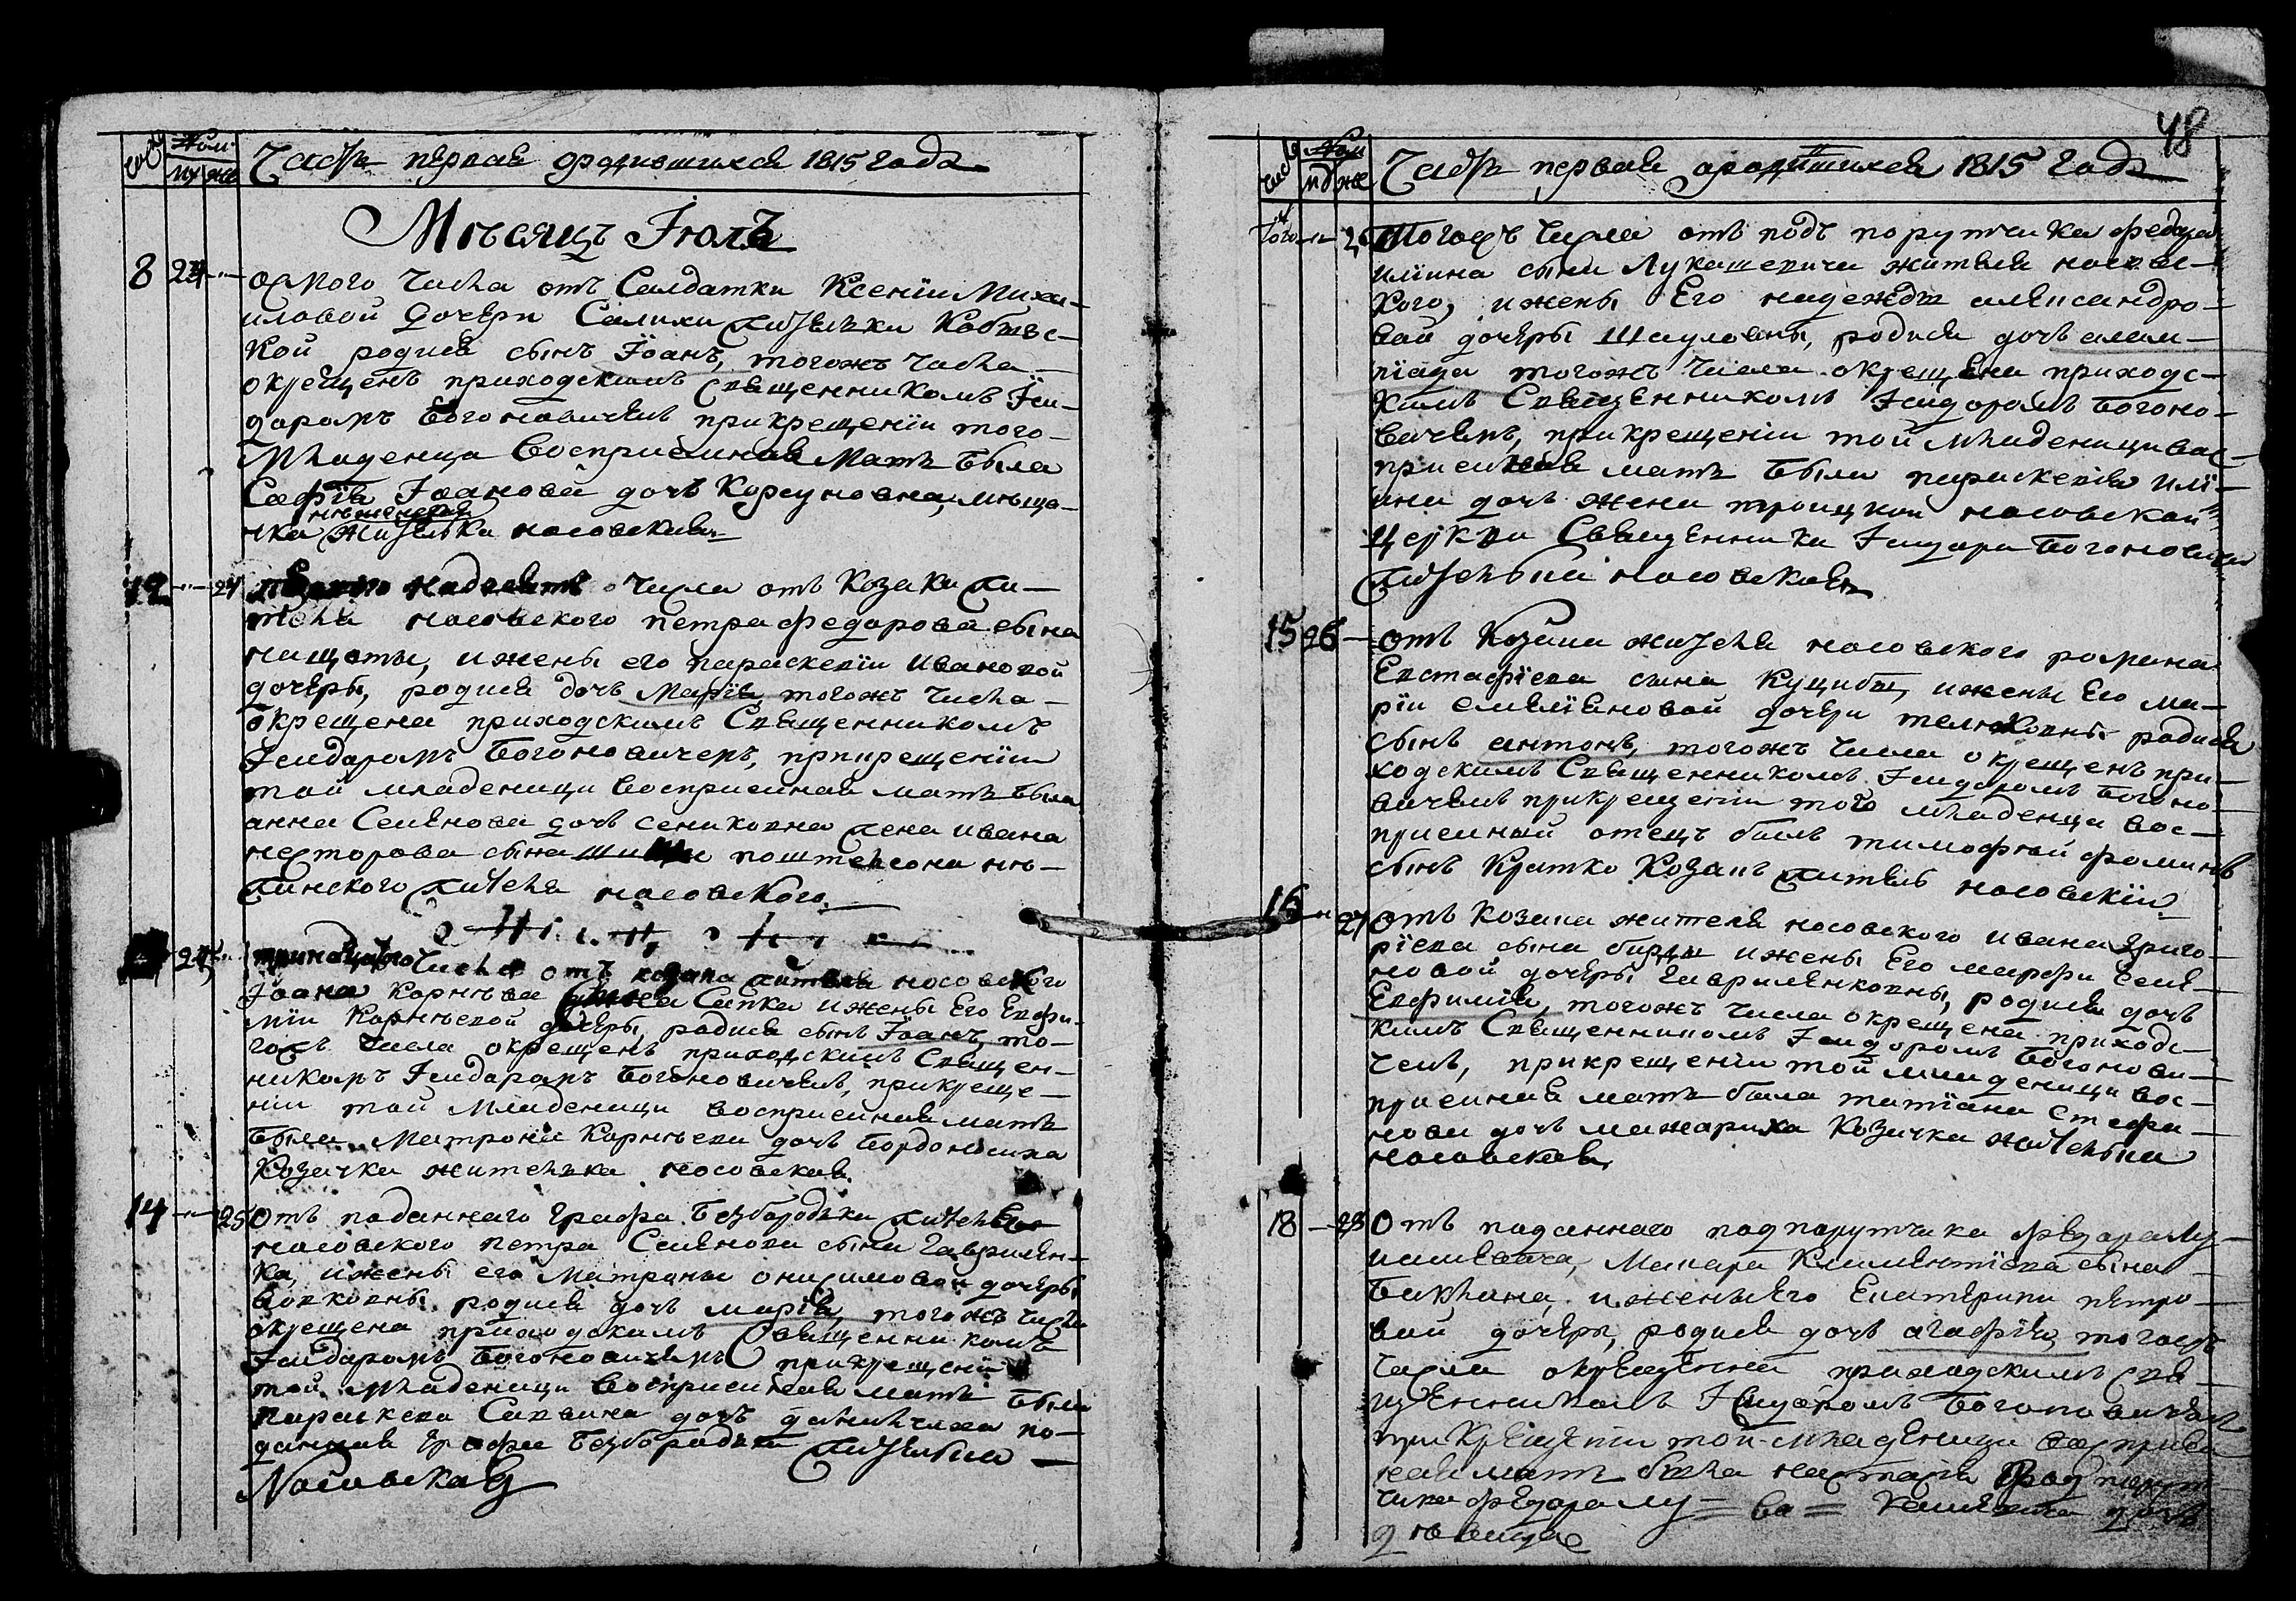 Часть первая ѡродившихся 1815 года
Мѣсяцъ Іюль
8 24 осмого числа отъ Салдатки Ксеніи Миха-
иловой дочери Салихи жителки Кобыжс-
кой родися сынъ Іоанъ, тогожъ числа
окрещенъ приходскимъ Священникомъ Іси-
доромъ Богоновичемъ прикрещеніи того
младенца Восприемная Мать была
Софія Іоанова дочь Корсуновна, мѣща-
нка нѣженская жителка носовская
12 24 числа отъ Козака жи-
теля носовского петра федорова сына
нищоты, ижены его параскевіи Ивановой
дочеры, родися дочь Марія, тогожъ числа
окрещена приходскимъ Священникомъ
Ісидоромъ Богоновичемъ, прикрещеніи
той младеници восприемная мать была
анна Семенова дочь сениковна жена ивана
несторова сына поштелиона нѣ-
жинского жителя носовского
тринадцатого числа отъ козака жителя носовского
Іоана Корнѣева сына Сапка ижены Его Евфи-
міи Корнѣевой дочеры, родися сынъ Іоанъ, то-
гожъ числа окрещенъ приходскимъ Священ-
никомъ Ісидоромъ Богоновичемъ, прикреще-
ніи той Младеници восприемная мать
была Матрона Корнѣева дочь бордоносиха
Козачка жителька носовская
14 25 Отъ поданнаго Графа Безбородька жителя
носовского петра Семенова сына Гаврилен-
ка, ижены его Матроны онисимовой дочеры
вовковны родися дочь марія, тогожъ числа
окрещена приходскимъ Священникомъ
Ісидоромъ Богоновичемъ прикрещеніи
той младеници Восприемная мать была
Параскева Саввина дочь по-
данная Графа Безбородька жителька
Носовская
48
Часть первая ѡродившихся 1815 года
Тогожъ числа отъ подъ порутчика федора
иліина сына Лукашевича жителя носовс-
кого, ижены Его надежды александро-
вой дочеры Шауловны, родися дочь алим-
піада тогожъ числа окрещена приходс-
кимъ Священникомъ Ісидоромъ Богоно-
вичемъ, прикрещеніи той младеници вос-
приемная мать была параскевія илі-
ина дочь жена троицкой носовской
церкви Священника Ісидора Богоновича
жителька носовская
15 26 отъ Козака жителя носовского романа
Евстафіева сына Куцибы, ижены Его ма-
ріи емеліановой дочери родися
сынъ антонъ, тогожъ числа окрещенъ при-
ходскимъ Священникомъ Ісидоромъ Богоно-
вичемъ прикрещеніи того младенца вос-
приемный отецъ былъ тимофѣй фоминъ
сынъ Кратко Козакъ житель носовскій
16 27 Отъ Козака жителя носовского ивана Григо-
ріева сына ижены Его марфы семе-
новой дочеры Гавриленковны, родися дочь
Евфимія, тогожъ числа окрещена приходс-
кимъ Священникомъ Ісидоромъ Богонови-
чемъ, прикрещеніи той младеници вос-
приемная мать была татіана стефа-
нова дочь мажариха Козачка жителька
носовская
18 28 Отъ поданного подпорутчика федора Лу-
кашевича, Макара Климентіева сына
ижены Его Екатерини петро-
вой дочеры, родися дочь агафія, тогожъ
числа окрещенна приходскимъ свя-
щенникомъ Ісидоромъ Богоновичемъ
прикрещеніи той младеници восприем-
ная мать была настасія подпорут-
чика федора Лу= ка= шевича дочь
дѣвица